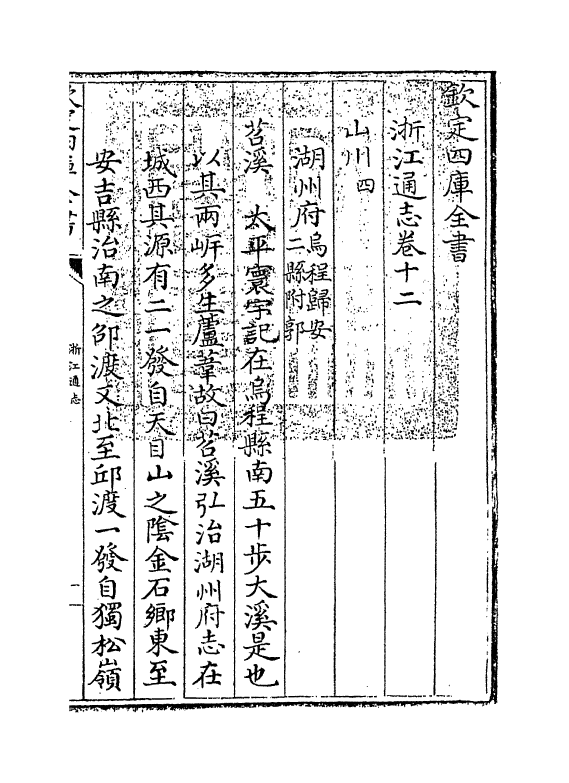 欽定四庫全書
浙江通志卷十二
山川四
湖州府烏程歸安
二縣附郭
苕溪 太平寰宇記在烏程縣南五十步大溪是也
以其兩岍多生蘆葦故曰苕溪弘治湖州府志在
城西其源有二一發自天目山之陰金石鄉東至
安吉縣治南之邵渡又北至邱渡一發自獨松嶺
浙江通志
一